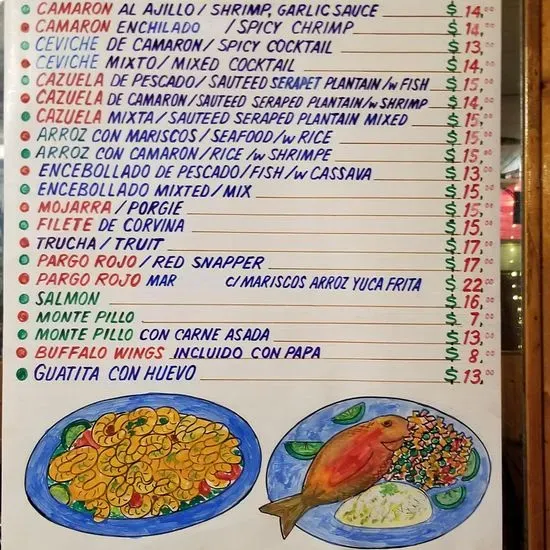 CAMARON AL AJILLO / SHRIMP, GARLIC SAUCE $ 14.00
CAMARON ENCHILADO / SPICY CHRIMP $ 14.00
CEVICHE DE CAMARON / SPICY COCKTAIL $ 13.00
CEVICHE MIXTO / MIXED COCKTAIL $ 14.00
CAZUELA DE PESCADO / SAUTEED SERAPET PLANTAIN /w FISH $ 15.00
CAZUELA DE CAMARON / SAUTEED SERAPED PLANTAIN /w SHRIMP $ 14.00
CAZUELA MIXTA / SAUTEED SERAPED PLANTAIN MIXED $ 15.00
ARROZ CON MARISCOS / SEAFOOD /w RICE $ 15.00
ARROZ CON CAMARON / RICE /w SHRIMPE $ 15.00
ENCEBOLLADO DE PESCADO / FISH /w CASSAVA $ 13.00
ENCEBOLLADO MIXTED / MIX $ 15.00
MOJARRA / PORGIE $ 15.00
FILETE DE CORVINA $ 15.00
TRUCHA / TRUIT $ 17.00
PARGO ROJO / RED SNAPPER $ 17.00
PARGO ROJO MAR C/ MARISCOS ARROZ YUCA FRITA $ 22.00
SALMON $ 16.00
MONTE PILLO $ 7.00
MONTE PILLO CON CARNE ASADA $ 13.00
BUFFALO WINGS INCLUIDO CON PAPA $ 8.00
GUATITA CON HUEVO $ 13.00